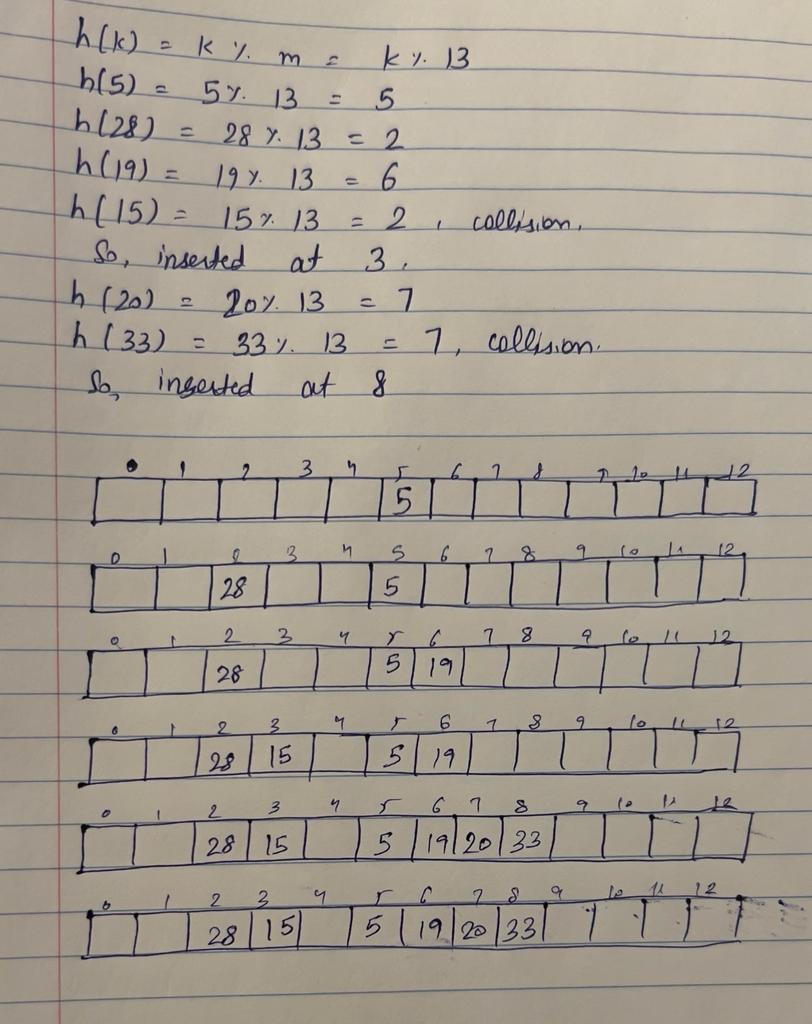 h(k) = k % m = k % 13
h(5) = 5 % 13 = 5
h(28) = 28 % 13 = 2
h(19) = 19 % 13 = 6
h(15) = 15 % 13 = 2, collision.
So, inserted at 3.
h(20) = 20 % 13 = 7
h(33) = 33 % 13 = 7, collision.
So, inserted at 8
0 1 2 3 4 5 6 7 8 9 10 11 12
5
0 1 2 3 4 5 6 7 8 9 10 11 12
28 5
0 1 2 3 4 5 6 7 8 9 10 11 12
28 5 19
0 1 2 3 4 5 6 7 8 9 10 11 12
28 15 5 19
0 1 2 3 4 5 6 7 8 9 10 11 12
28 15 5 19 20 33
0 1 2 3 4 5 6 7 8 9 10 11 12
28 15 5 19 20 33